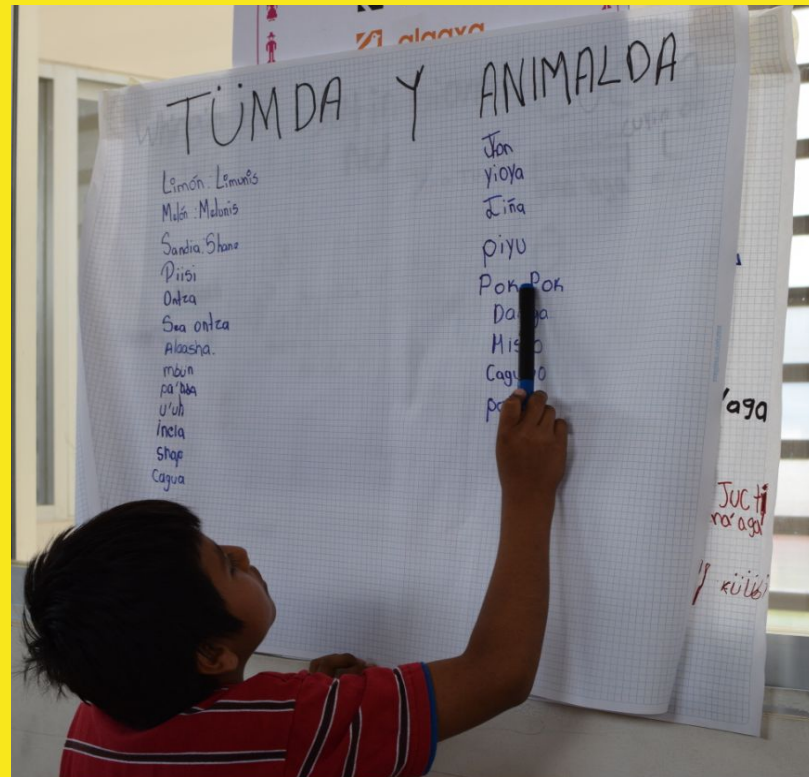 alaaya
TÜMDA Y ANIMALDA
Limón: Limunis
Melón: Melunis
Sandia: Shane
Piisi
Ontza
Sea ontza
Alaasha.
mbün
u'uh
incla
Shap
Cagua
Jon
yioya
Iiña
piyu
Pok Pok
aga
Jucti
na'aga
külüb